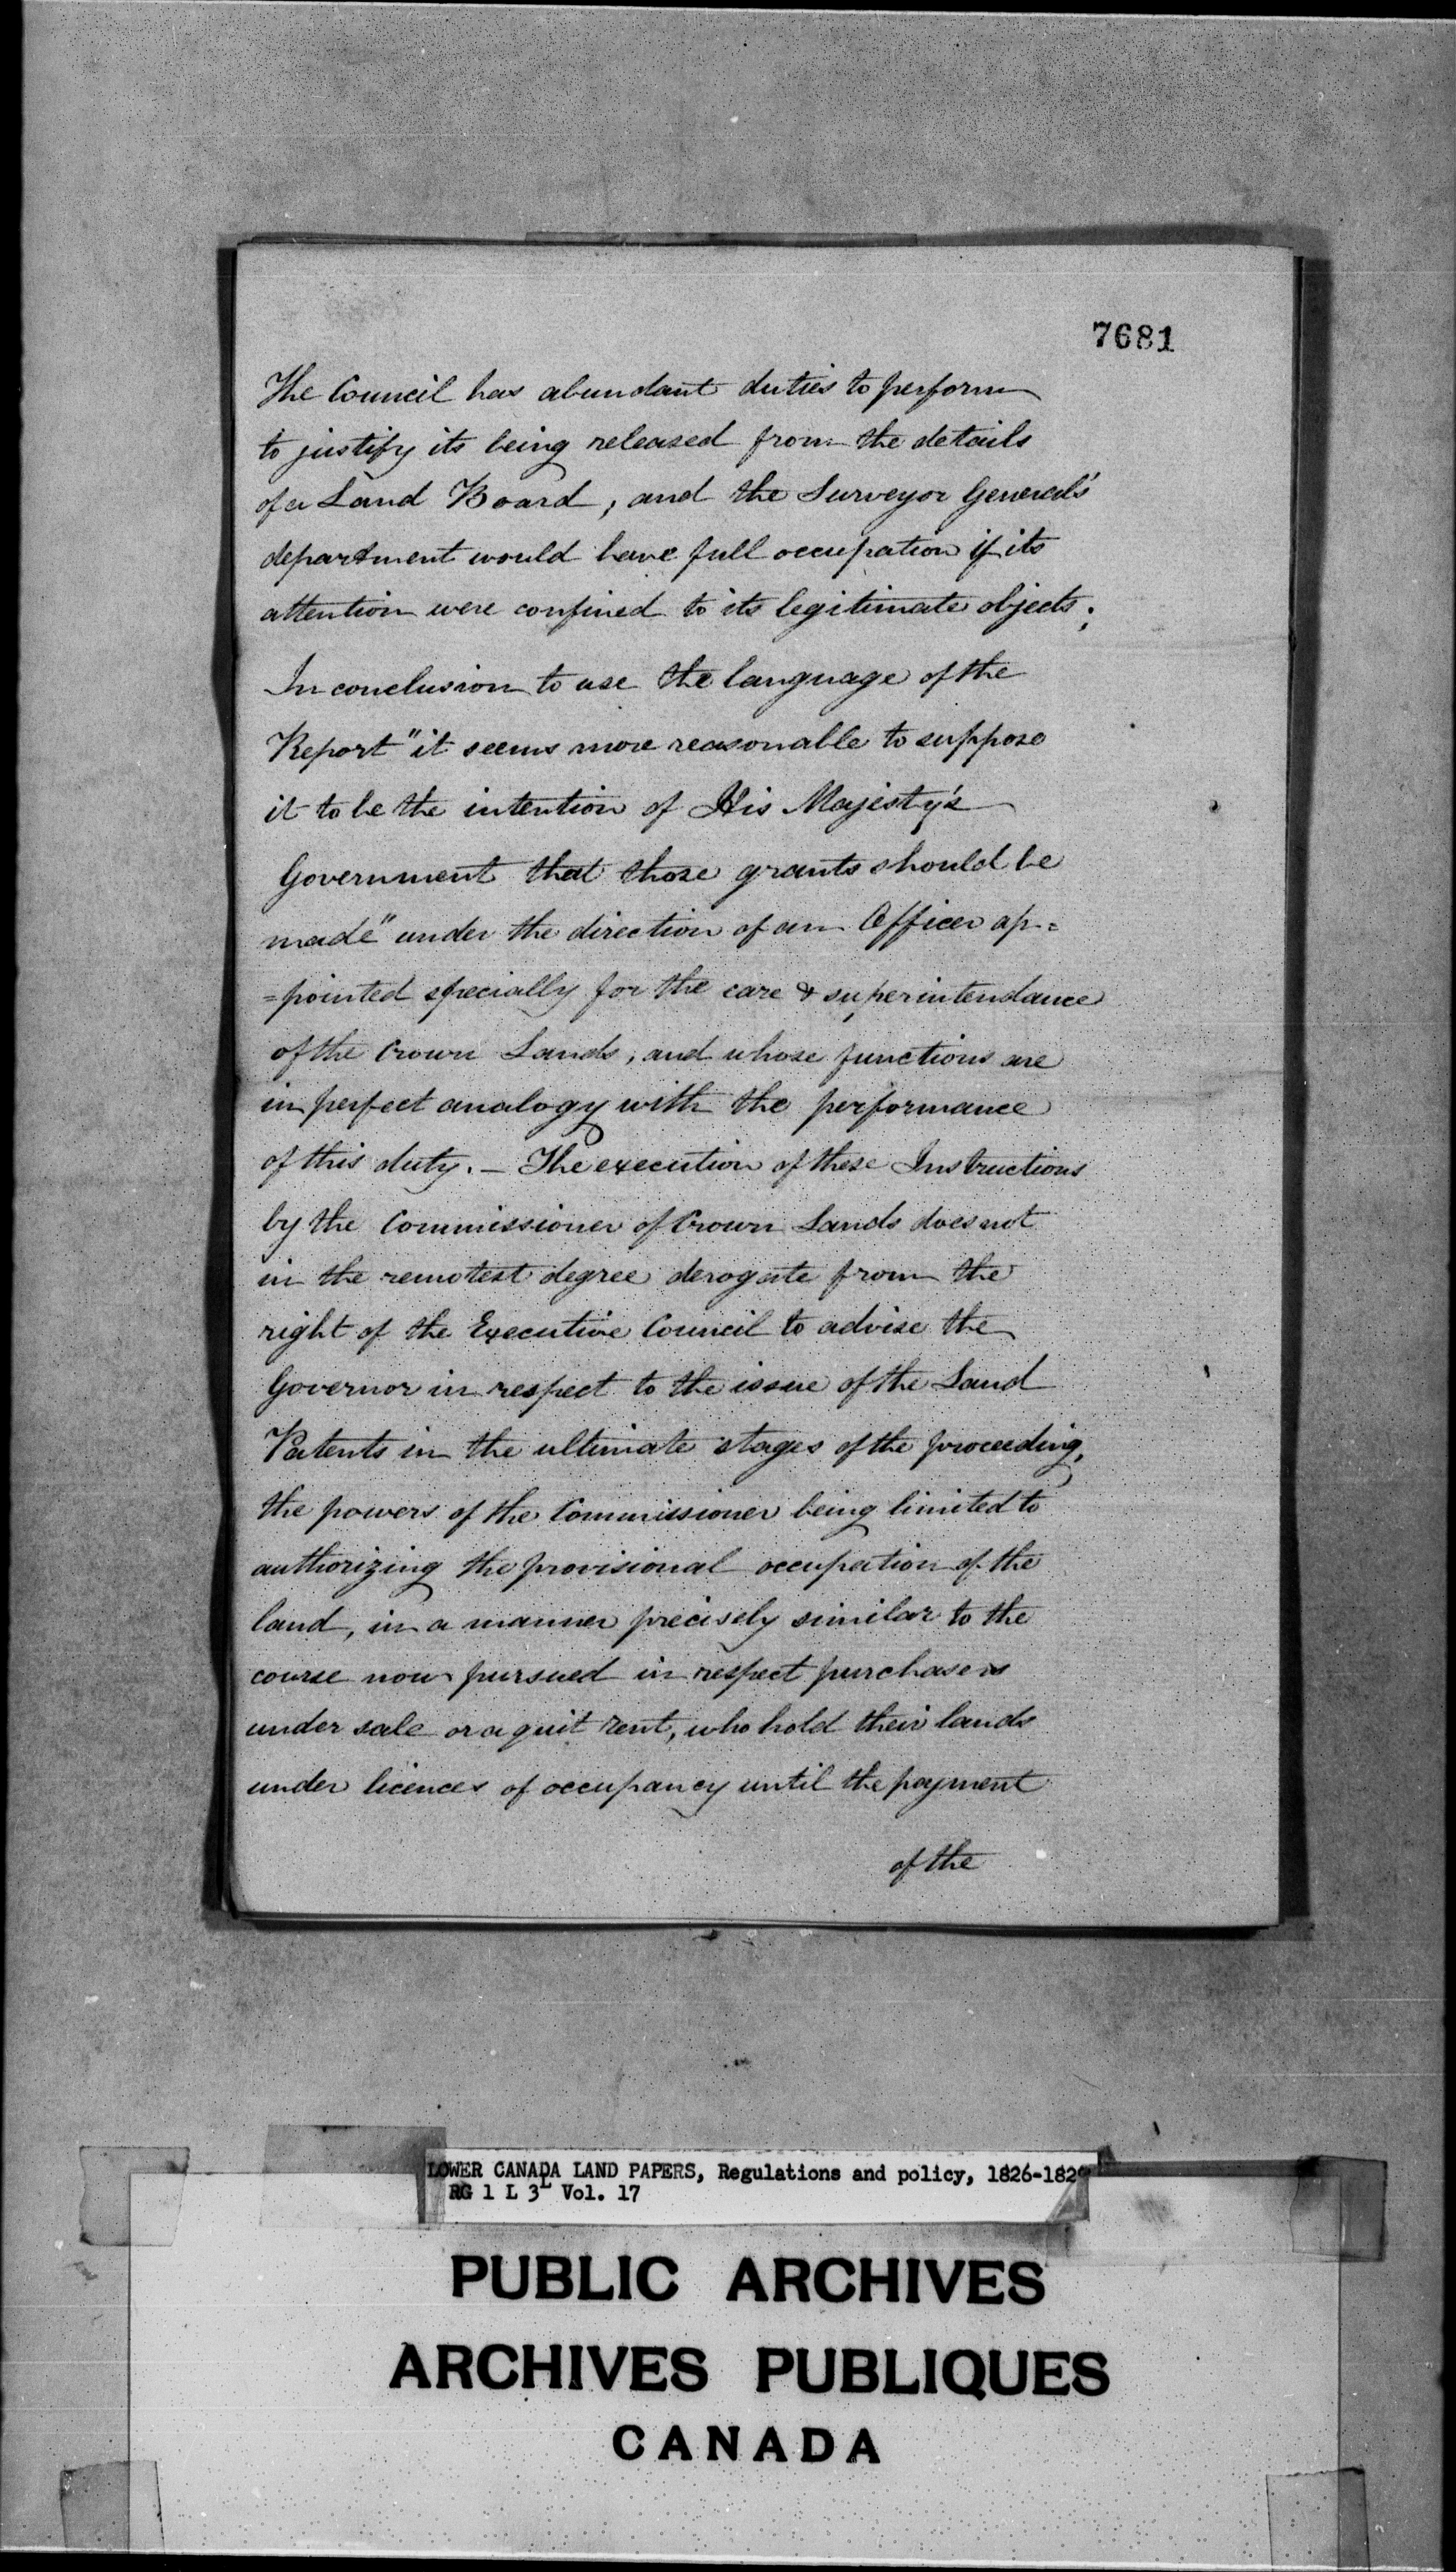 7681
The Council has abundant duties to perform
to justify its being released from the details
of a Land Board, and the Surveyor General's
department would have full occupation if its
attention were confined to its legitimate objects.
In conclusion to use the language of the
Report "it seems more reasonable to suppose
it to be the intention of His Majesty's
Government that those grants should be
made" under the direction of an Officer ap=
=pointed specially for the care & superintendance
of the Crown Lands, and whose functions are
in perfect analogy with the performance
of this duty. – The execution of these Instructions
by the Commissioner of Crown Lands does not
in the remotest degree derogate from the
right of the Executive Council to advise the
Governor in respect to the issue of the Land
Patents in the ultimate stages of the proceeding,
the powers of the Commissioner being limited to
authorizing the provisional occupation of the
land, in a manner precisely similar to the
course now pursued in respect purchasers
under sale or a quit rent, who hold their lands
under licences of occupancy until the payment
of the
LOWER CANADA LAND PAPERS, Regulations and policy, 1826-1829
RG 1 L 3L Vol. 17
PUBLIC ARCHIVES
ARCHIVES PUBLIQUES
CANADA